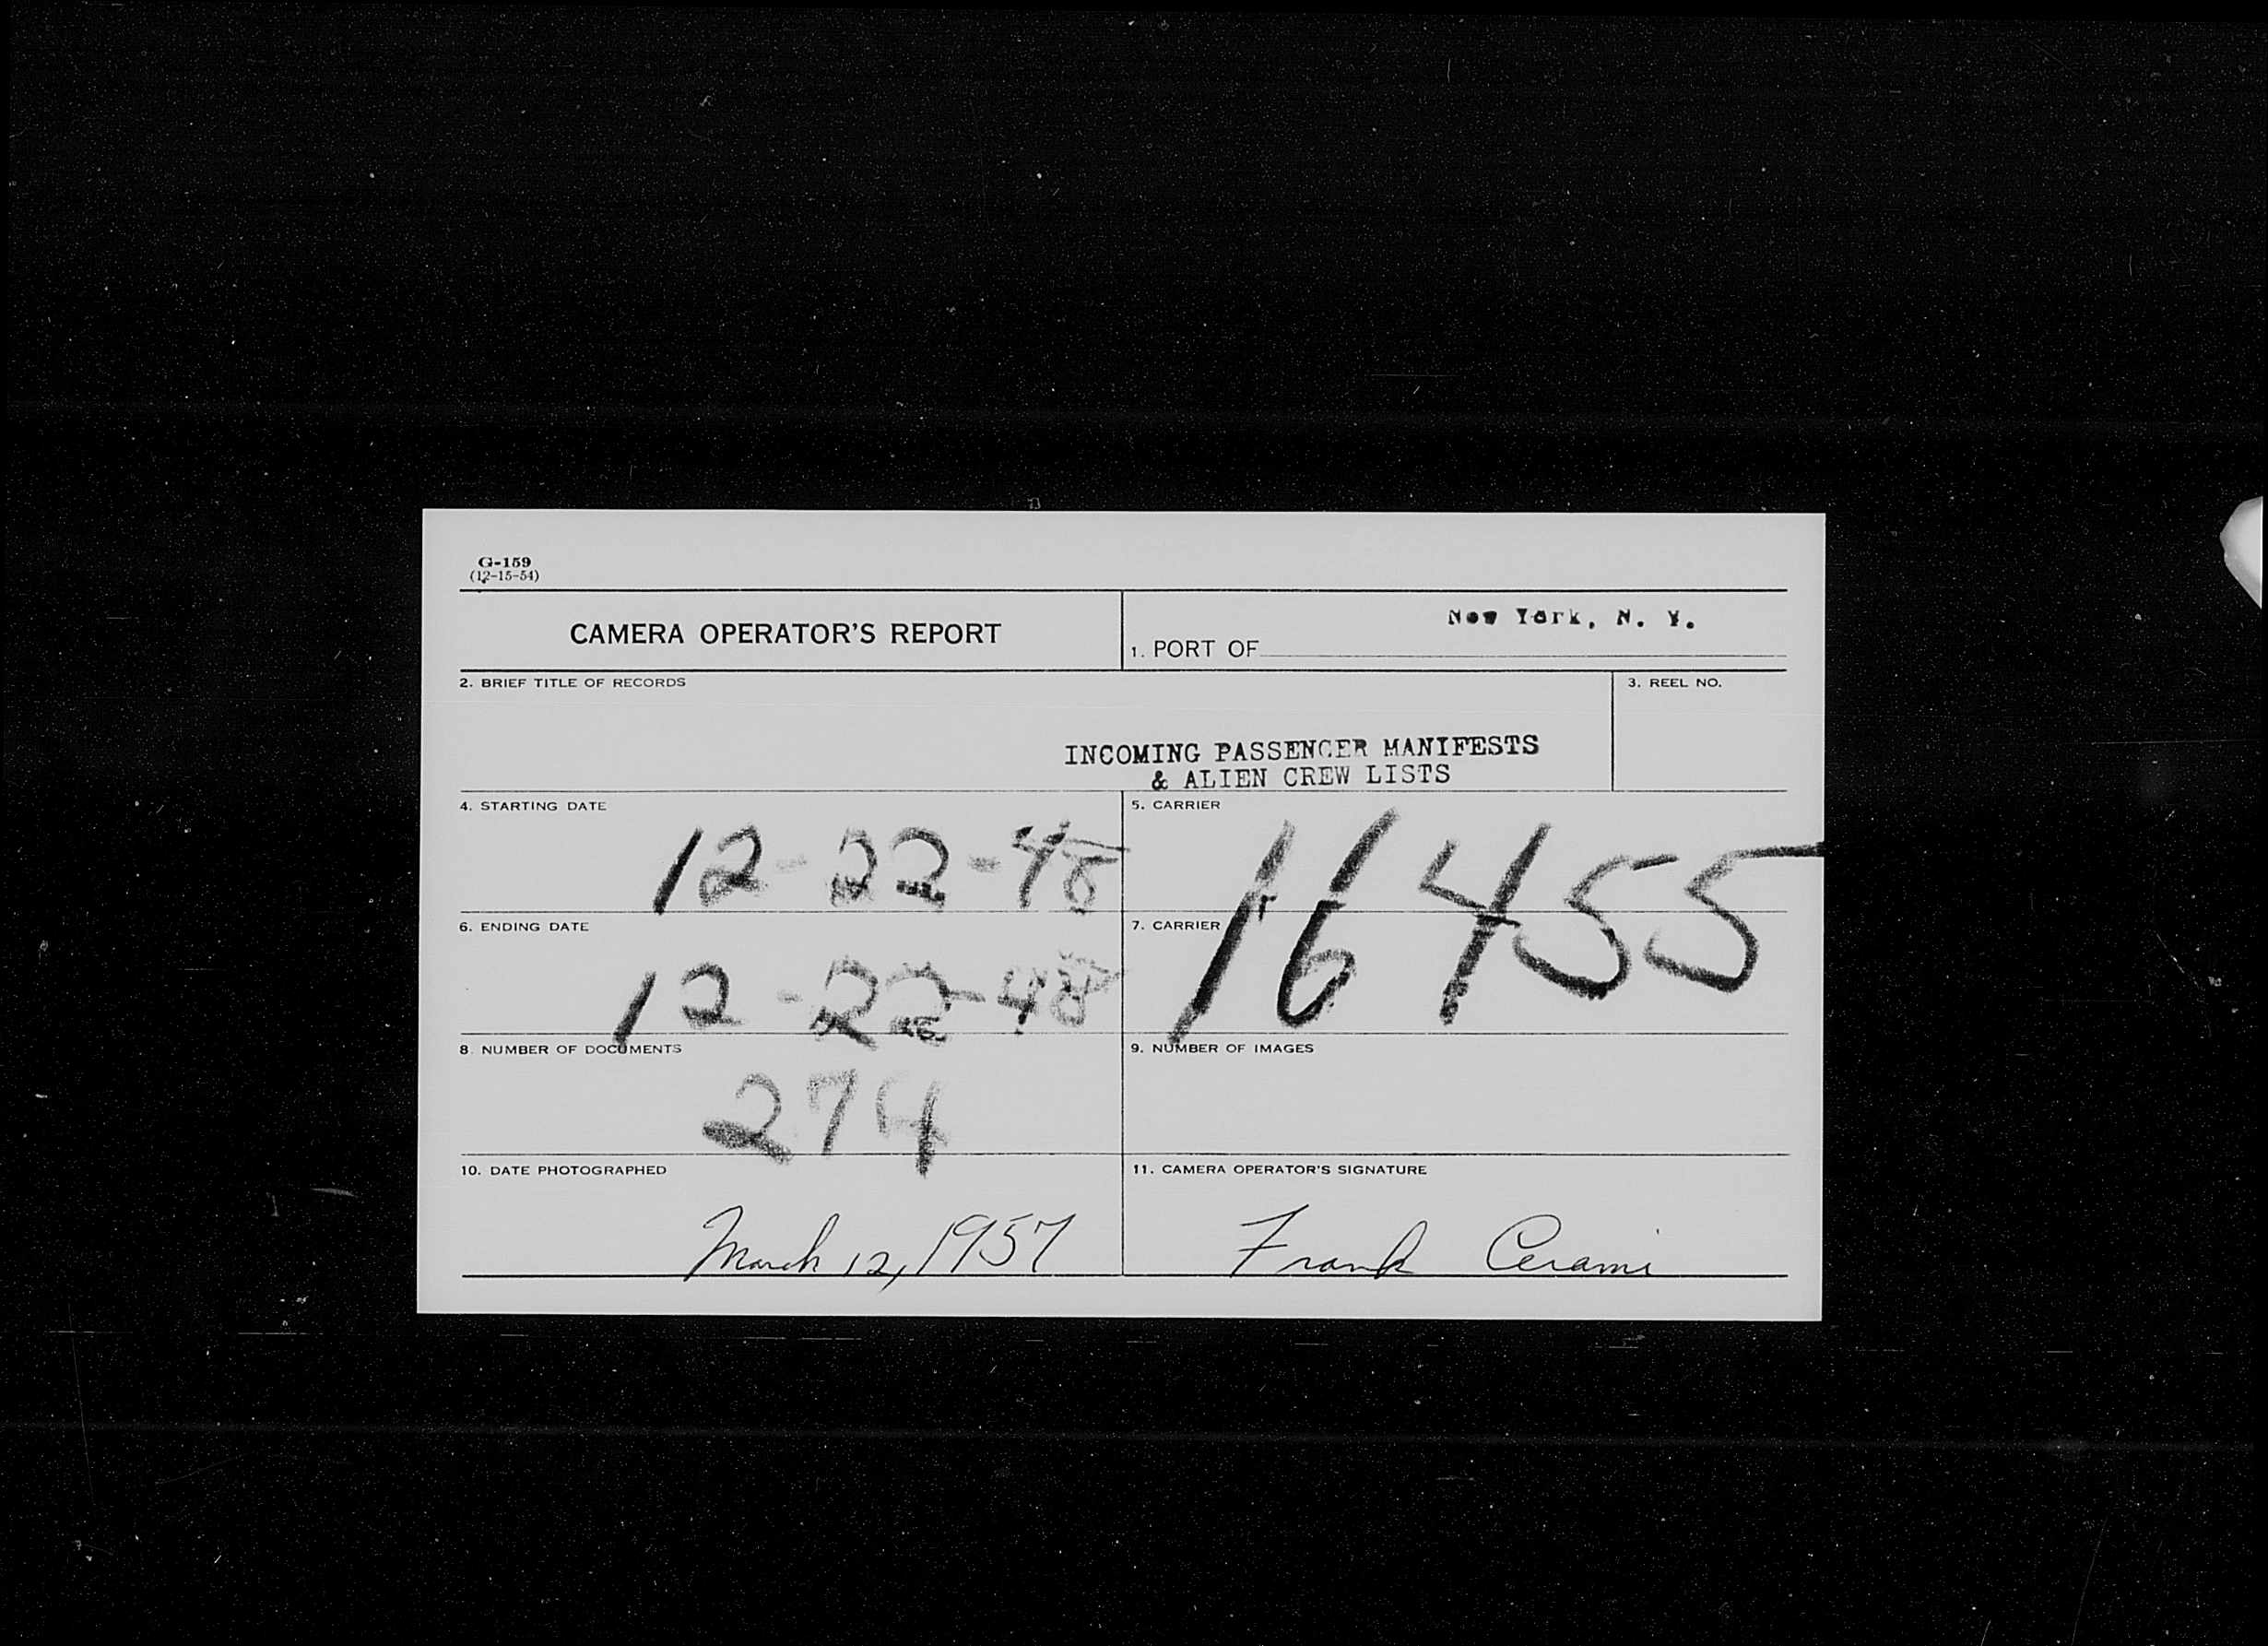 G-159
(12-15-54)
CAMERA OPERATOR'S REPORT
1. PORT OF New York, N. Y.
2. BRIEF TITLE OF RECORDS
3. REEL NO.
INCOMING PASSENGER MANIFESTS
& ALIEN CREW LISTS
4. STARTING DATE
12-22-48
5. CARRIER
16455
6. ENDING DATE
12-22-48
7. CARRIER
8. NUMBER OF DOCUMENTS
274
9. NUMBER OF IMAGES
10. DATE PHOTOGRAPHED
March 12, 1957
11. CAMERA OPERATOR'S SIGNATURE
Frank Cerami